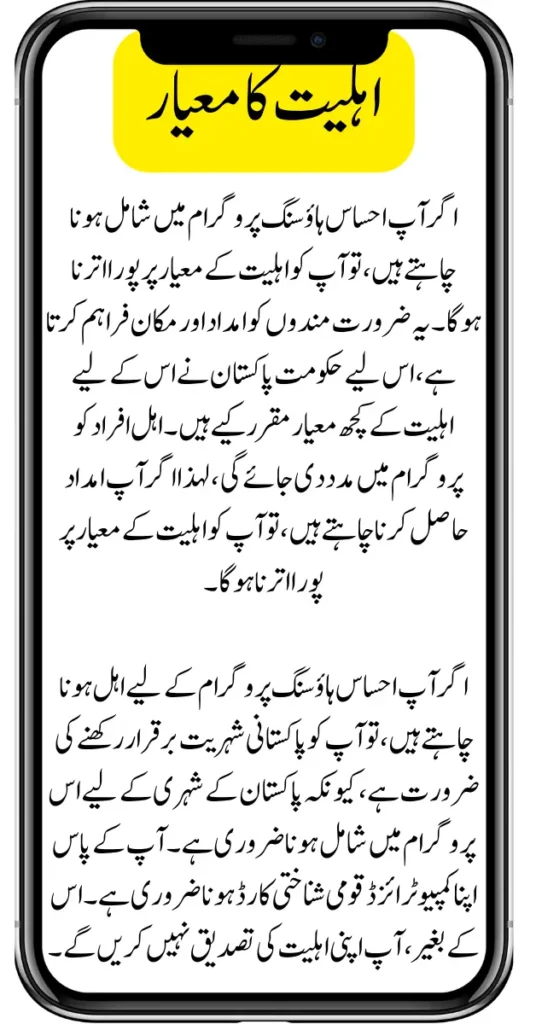 اہلیت کا معیار
اگر آپ احساس ہاؤسنگ پروگرام میں شامل ہونا
چاہتے ہیں، تو آپ کو اہلیت کے معیار پر پورا اترنا
ہوگا۔ یہ ضرورت مندوں کو امداد اور مکان فراہم کرتا
ہے، اس لیے حکومت پاکستان نے اس کے لیے
اہلیت کے کچھ معیار مقرر کیے ہیں۔ اہل افراد کو
پروگرام میں مدد دی جائے گی، لہذا اگر آپ امداد
حاصل کرنا چاہتے ہیں، تو آپ کو اہلیت کے معیار پر
پورا اترنا ہوگا۔
اگر آپ احساس ہاؤسنگ پروگرام کے لیے اہل ہونا
چاہتے ہیں، تو آپ کو پاکستانی شہریت برقرار رکھنے کی
ضرورت ہے، کیونکہ پاکستان کے شہری کے لیے اس
پروگرام میں شامل ہونا ضروری ہے۔ آپ کے پاس
اپنا کمپیوٹرائزڈ قومی شناختی کارڈ ہونا ضروری ہے۔ اس
کے بغیر، آپ اپنی اہلیت کی تصدیق نہیں کریں گے۔